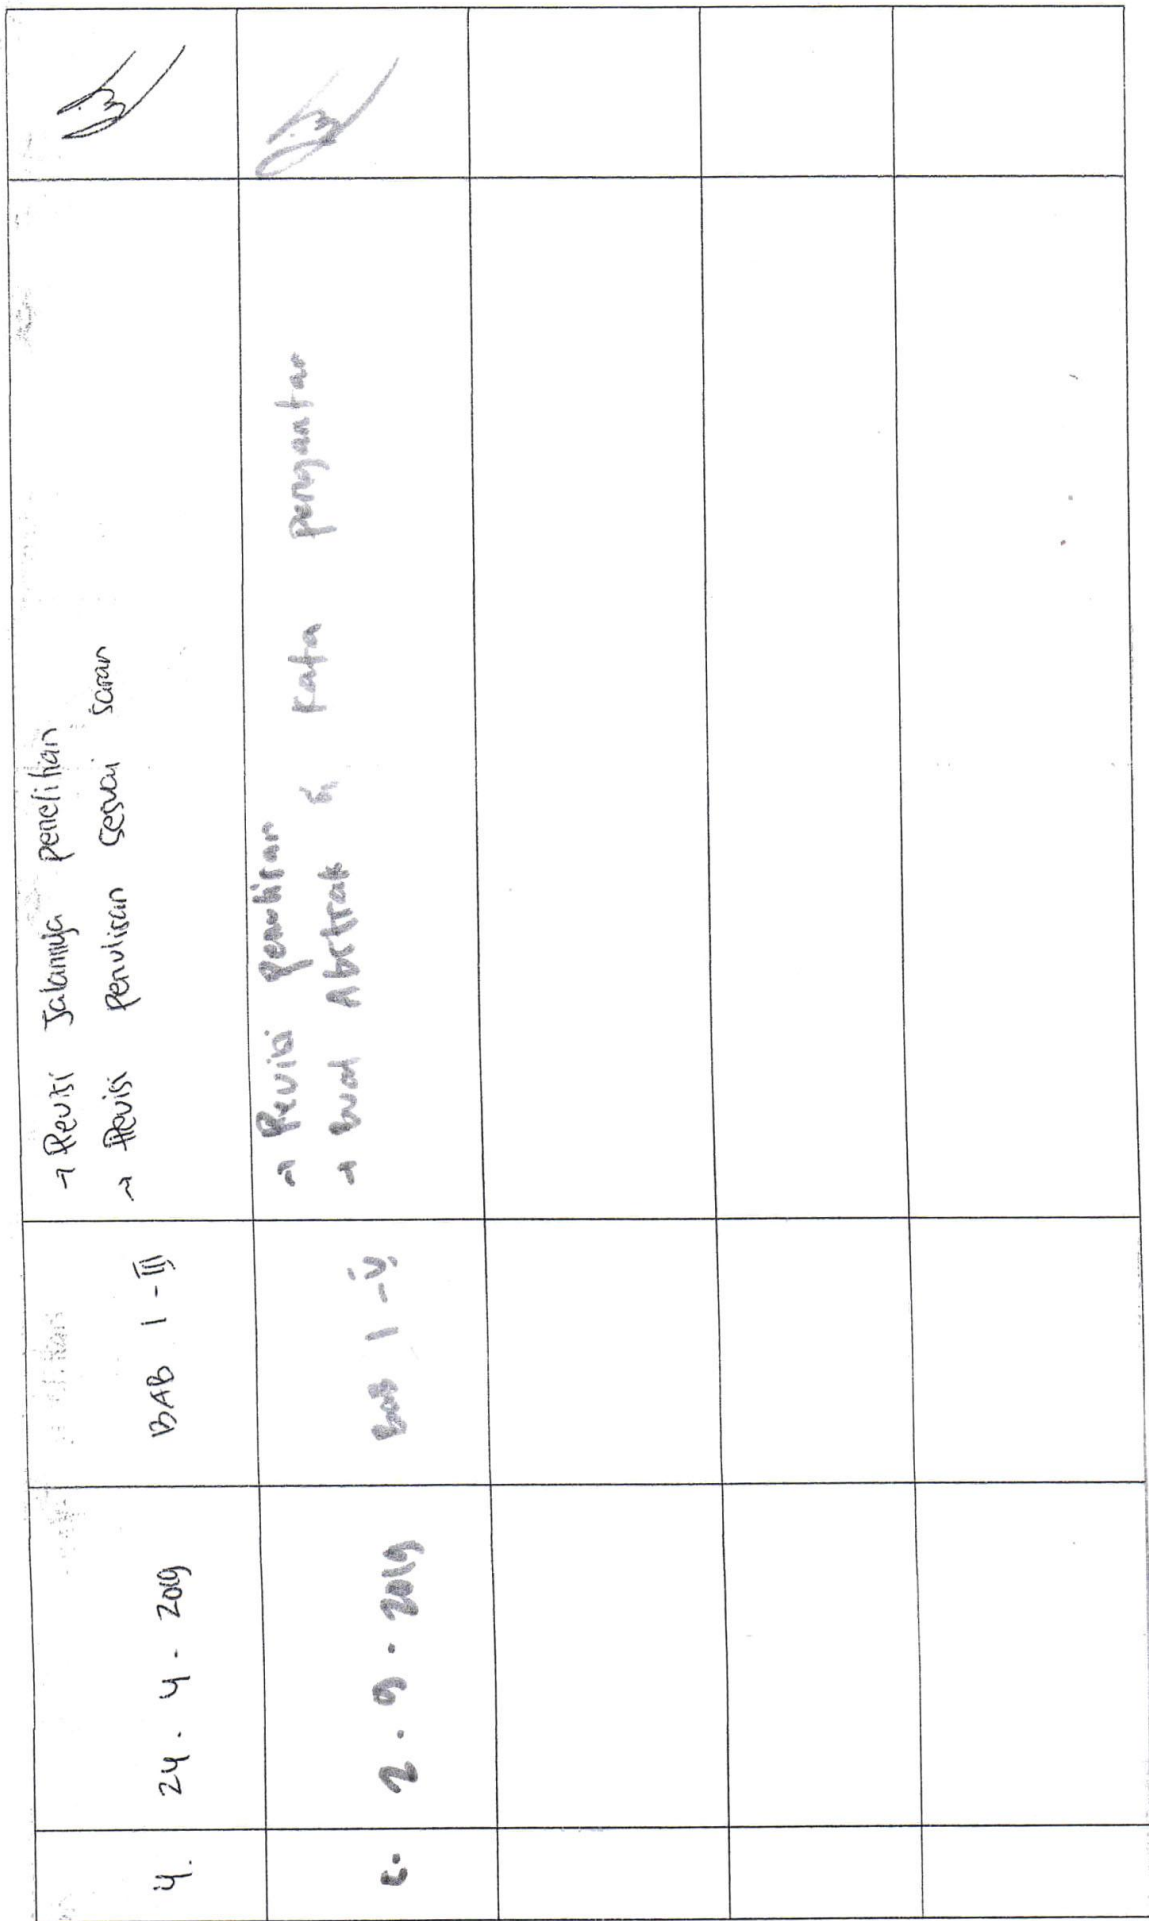 4.
24 - 4 - 2019
BAB I - III
→ Revisi Jalannya penelitian
→ Revisi Penulisan sesuai saran
5.
2 - 9 - 2019
Bab I - V
→ Revisi penulisan
→ buat Abstrak & kata pengantar